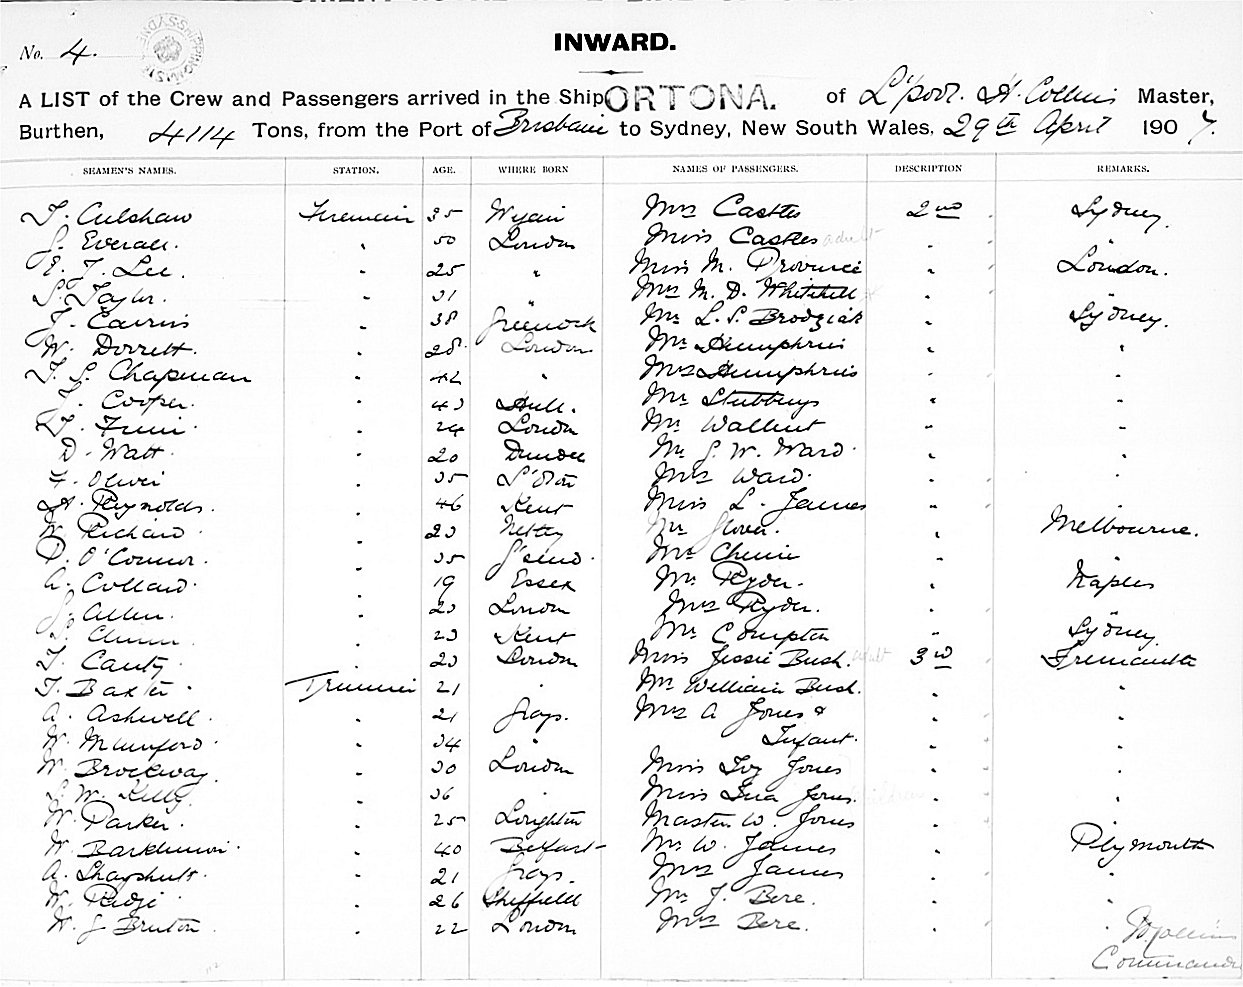 No. 4.
INWARD.
A LIST of the Crew and Passengers arrived in the Ship ORTONA. of L'pool. A. Collins Master,
Burthen, 4114 Tons, from the Port of Brisbane to Sydney, New South Wales, 29th April 1907.
SEAMEN'S NAMES. STATION. AGE. WHERE BORN NAMES OF PASSENGERS. DESCRIPTION REMARKS.
T. Culshaw Firemen 35 Wigan Mrs Castles 2nd Sydney.
G. Everall. " 50 London Miss Castles adult "
E. J. Lee. " 25 " Miss M. Province " London.
S. Taylor. " 31 Mrs M. D. Whitehill "
J. Cairns " 38 Greenock Mr L. S. Brodziak " Sydney.
W. Dorrett. " 28 London Mr Humphries " "
T. S. Chapman " 42 " Mrs Humphries " "
Cooper. " 43 Hull. Mr Stubbings " "
" 24 London Mr " "
D. Watt " 20 Dundee Mr G. W. Ward " "
" 35 Mrs Ward. " "
A. Reynolds. " 46 Kent Miss L. James " "
W. Richard " 23 Mr Glover. " Melbourne.
P. O'Connor. " 35 G'send. Mr " "
A. Collard. " 19 Essex Mr Ryder. " Naples
G. Allen. " 23 London Mrs Ryder. "
" 23 Kent Mr Compton " Sydney
T. Canty. " 23 London Miss Jessie Bush. adult 3rd Fremantle
T. Baxter. Trimmer 21 " Mr William Bush. " "
A. Ashwell. " 21 Grays. Mrs A Jones & " "
W. Mumford. " 34 " Infant. " "
W. Brockway. " 30 London Miss Ivy Jones " "
W. Kelly. " 36 " Miss Ina Jones. " "
W. Parker. " 25 Loughton Master W. Jones "
W. " 40 Belfast Mr W. James " Plymouth
A. " 21 Grays. Mrs James " "
W. " 26 Sheffield Mr J. Bere. " "
W. J Bruton " 22 London Mrs Bere. " "
Collins
Commander